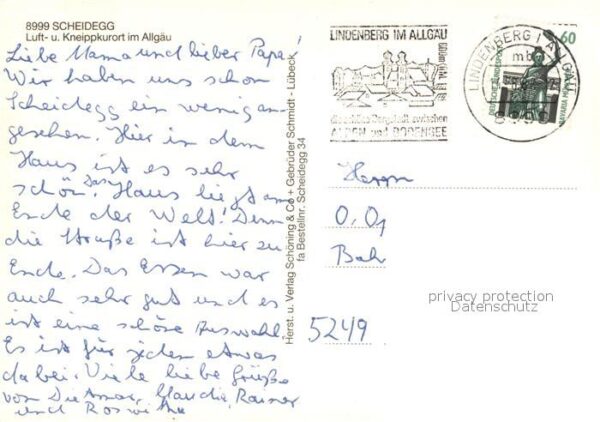 8999 SCHEIDEGG
Luft- u. Kneippkurort im Allgäu
Liebe Mama und lieber Papa!
Wir haben uns schon
Scheidegg ein wenig an-
gesehen. Hier in dem
Haus ist es sehr
schön. Das Haus liegt am
Ende der Welt! Denn
die Straße ist hier zu
Ende. Das Essen war
auch sehr gut und es
ist eine schöne Auswahl.
Es ist für jeden etwas
dabei. Viele liebe Grüße
von Claudia, Rainer
und
Herst. u. Verlag Schöning & Co + Gebrüder Schmidt - Lübeck
fa Bestellnr. Scheidegg 34
LINDENBERG IM ALLGÄU
zwischen
ALPEN und BODENSEE
LINDENBERG I ALLGÄU
mb
8998
60
DEUTSCHE BUNDESPOST
BAVARIA MÜNCHEN
Herrn
5249
privacy protection
Datenschutz